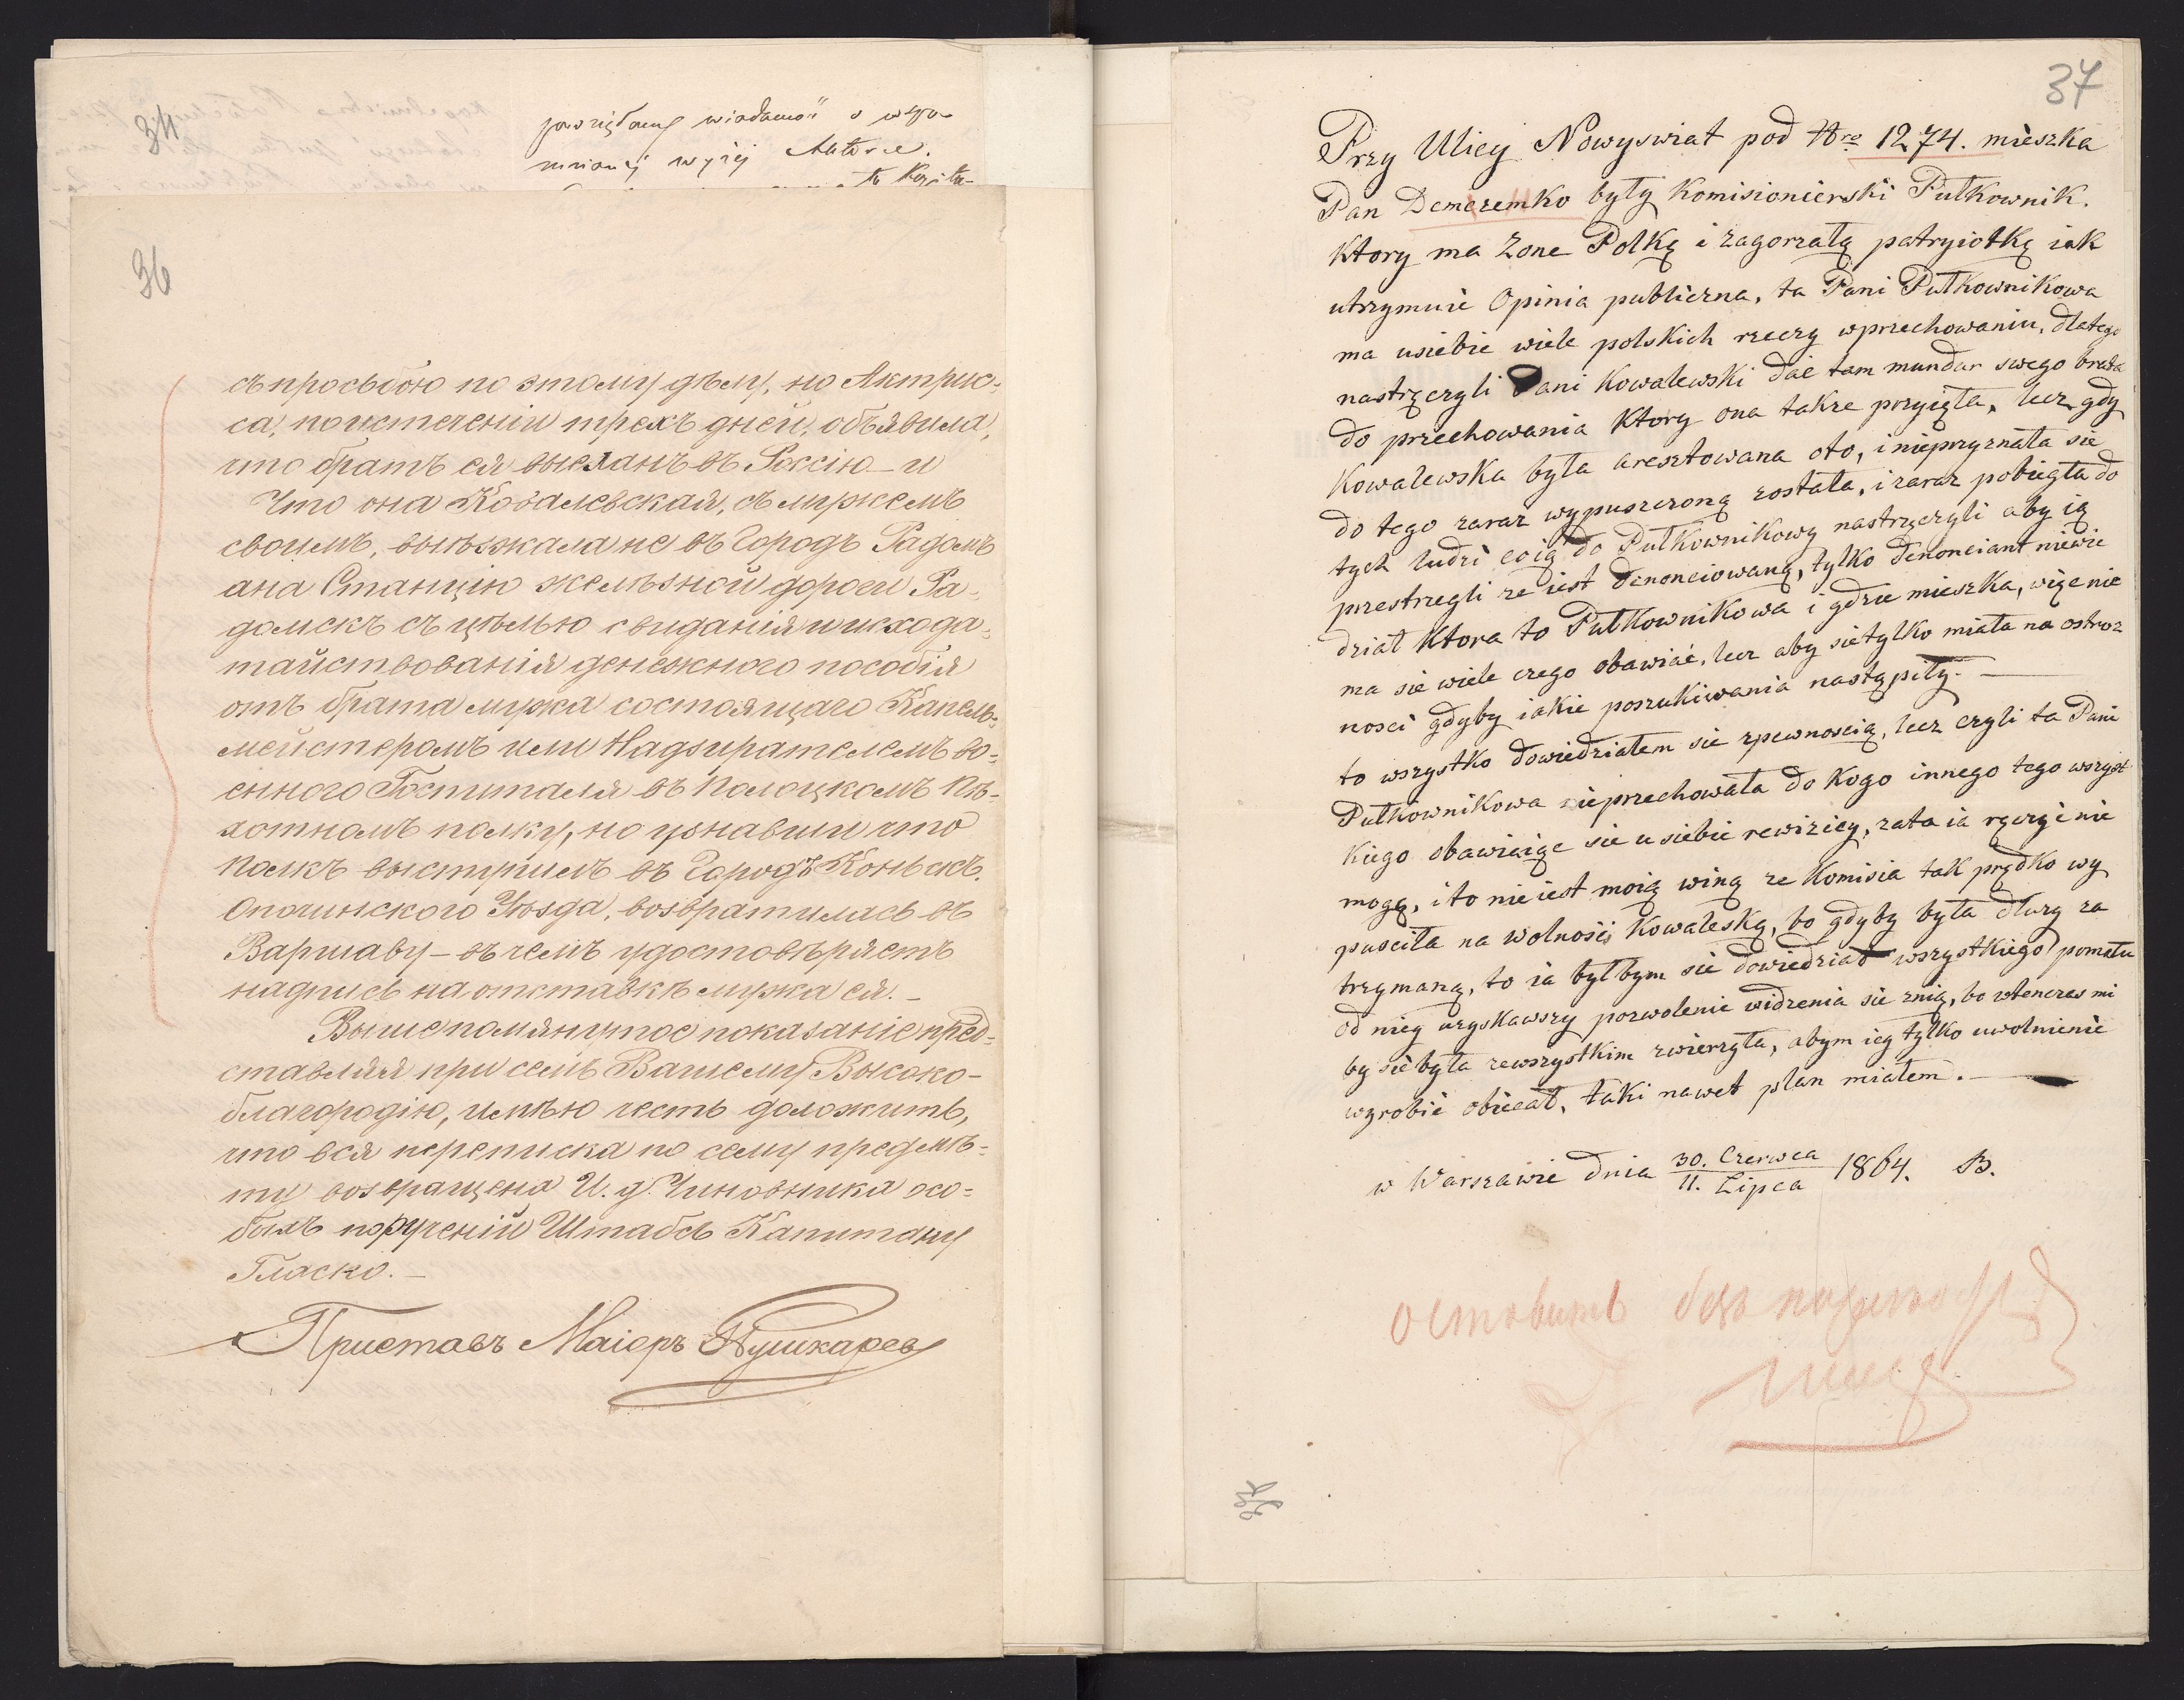 34
wiadomość o wspo-
mnionej wyżej Aktorce.
36
съ просьбою по этому дѣлу, но Актрис-
са, по истеченіи трехъ дней, объявила,
что братъ ея высланъ въ Россію – и
Что она Ковалевская, съ мужемъ
своимъ, выѣзжала не въ Городъ Радомъ
а на Станцію желѣзной дороги Ра-
домскъ съ цѣлью свиданія и исхода-
тайствованія денежнаго пособія
отъ брата мужа состоящаго Капель-
мейстеромъ или Надзирателемъ во-
еннаго Госпиталя въ Полоцкомъ Пѣ-
хотномъ полку, но узнавши что
полкъ выступилъ въ Городъ Коньскъ.
Опочинского Уѣзда, возвратилась въ
Варшаву – въ чемъ удостовѣряетъ
надпись на отставкѣ мужа ея. –
Вышепомянутое показаніе пред-
ставляя при семъ Вашему Высоко-
благородію, имѣю честь доложить,
что вся переписка по сему предмѣ-
ту возвращена И. д. Чиновника осо-
быхъ порученій Штабсъ Капитану
Гласко. –
Приставъ Маіоръ Пушкаревъ
37
Przy Ulicy Nowyswiat pod Nro 1274. mieszka
Pan Demezemko były Komisionierski Pułkownik.
Ktory ma Zone Polkę i zagorzałą patryiotkę iak
utrzymuie Opinia publiczna, ta Pani Pułkownikowa
ma usiebie wiele polskich rzeczy wprzechowaniu, dlatego
nastręczyli Pani Kowalewski dac tam mundur swego brata
do przechowania Ktory ona takze przyięła, lecz gdy
Kowalewska była aresztowana oto, i nieprzyznała sie
do tego zaraz wypuszczoną została, i zaraz pobiegła do
tych ludzi coią do Pułkownikowy nastręczyli aby ią
przestrzegli ze iest denonciowaną, tylko denonciant niewie
dział Ktora to Pułkownikowa i gdzie mieszka, więc nie
ma sie wiele czego obawiać, lecz aby sie tylko miała na ostroz
nosci gdyby iakie poszukiwania nastąpiły. –
to wszystko dowiedziałem sie zpewnoscią, lecz czyli ta Pani
Pułkownikowa nieprzechowała do Kogo innego tego wszyst
kiego obawiaiąc sie u siebie rewiziey, zato ia ręczyc nie
mogę, i to nie iest moią winą ze Komisia tak prędko wy
puscila na wolność Kowaleską, bo gdyby była dłuzy za
trzymaną, to ia byłbym sie dowiedział wszystkiego pomału
od niey uzyskawszy pozwolenie widzenia sie znią, bo wtenczas mi
by sie była zewszystkim zwierzyła, abym iey tylko uwolnienie
wyrobic obiecał, taki nawet plan miałem. –
w Warszawie dnia 30. Czerwca / 11. Lipca 1864. B.
оставить безъ